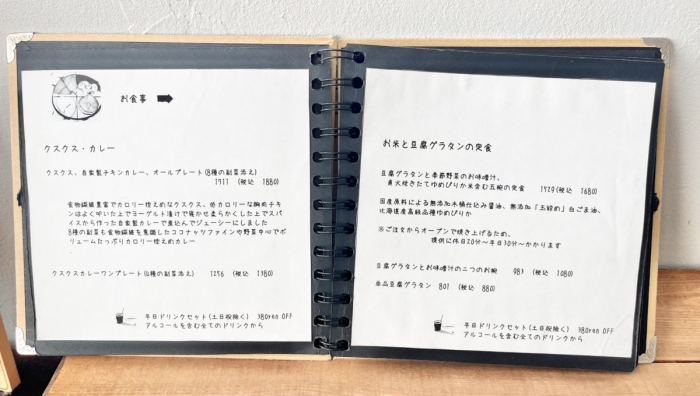 お食事
クスクス・カレー
クスクス、自家製チキンカレー、オールプレート(8種の副菜添え)
1711 (税込 1880)
食物繊維豊富でカロリー控えめなクスクス、低カロリーな胸肉チキ
ンはよく叩いた上でヨーグルト漬けで寝かせ柔らかくした上でスパ
イスから作った自家製カレーで煮込んでジューシーにしました
8種の副菜も食物繊維を意識したココナッツファインや野菜中心でボ
リュームたっぷりカロリー控えめカレー
クスクスカレーワンプレート(4種の副菜添え) 1256 (税込 1380)
平日ドリンクセット(土日祝除く) 180yen OFF
アルコールを含む全てのドリンクから
お米と豆腐グラタンの定食
豆腐グラタンと季節野菜のお味噌汁、
直火炊きたてゆめぴりか米含む五椀の定食 1529(税込 1680)
国産原料による無添加木桶仕込み醤油、無添加「玉締め」白ごま油、
北海道産高級品種ゆめぴりか
※ご注文からオーブンで焼き上げるため、
提供に休日20分〜平日30分〜かかります
豆腐グラタンとお味噌汁の二つのお椀 983 (税込 1080)
単品豆腐グラタン 801 (税込 880)
平日ドリンクセット(土日祝除く) 180yen OFF
アルコールを含む全てのドリンクから